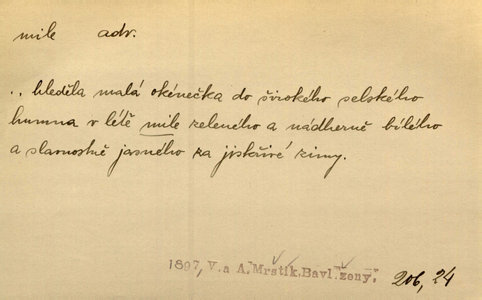 mile adv.
.. hleděla malá okénečka do širokého selského
humna v létě mile zeleného a nádherně bílého
a slavnostně jasného za jiskřivé zimy.
1897, V. a A. Mrštík, Bavl. ženy. 206, 24